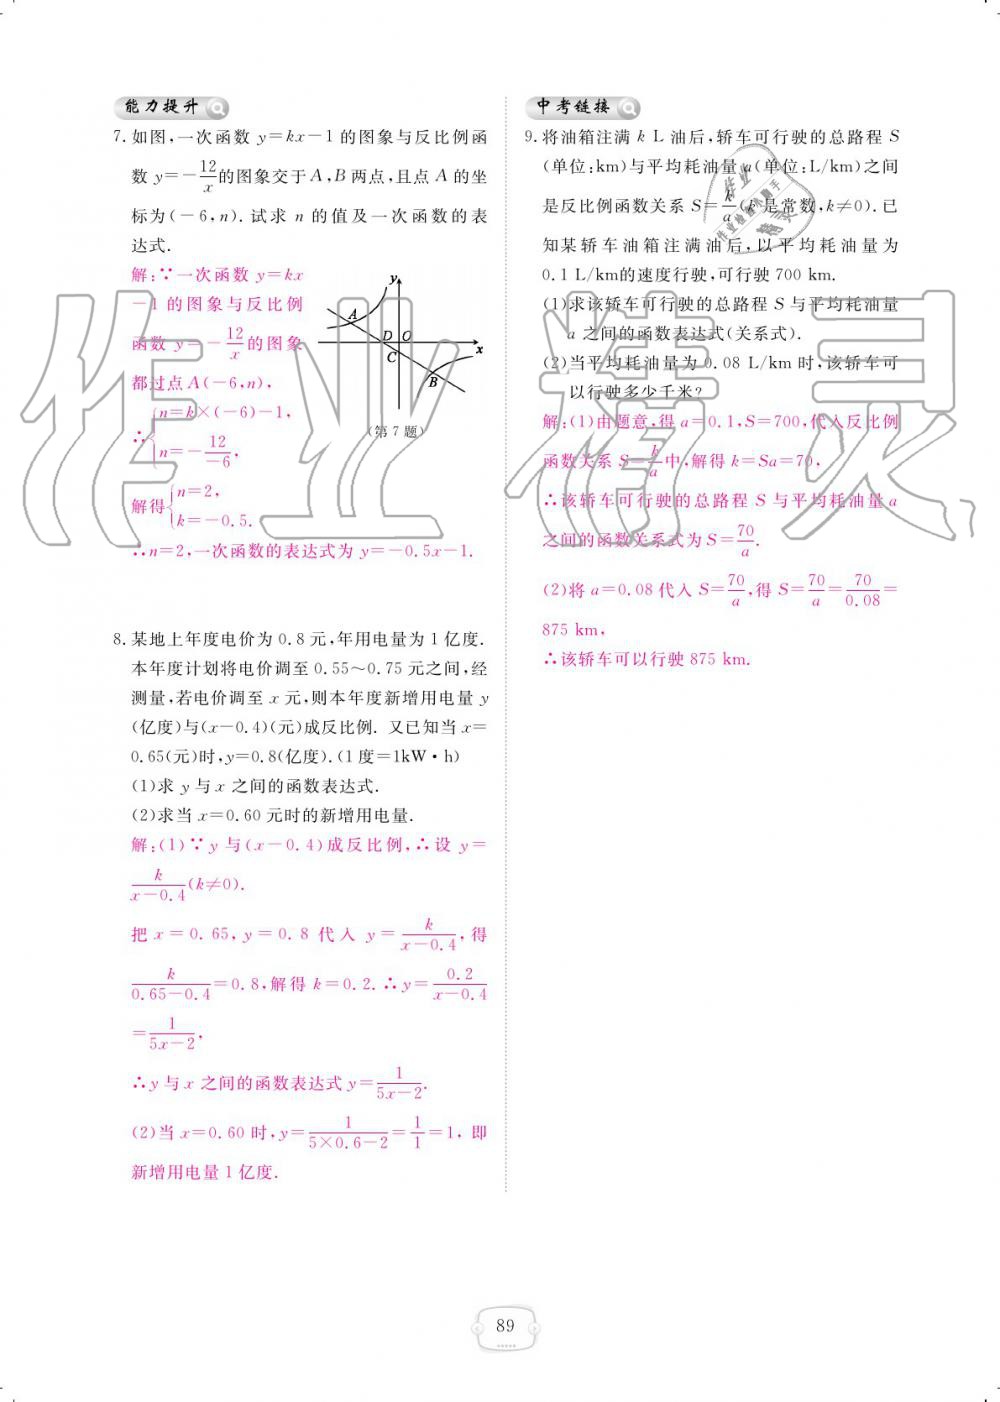 能力提升
7. 如图,一次函数 y=kx-1 的图象与反比例函
数 y=-12/x 的图象交于 A,B 两点,且点 A 的坐
标为(-6,n). 试求 n 的值及一次函数的表
达式.
解:∵一次函数 y=kx
-1 的图象与反比例
函数 y=-12/x 的图象
都过点 A(-6,n),
∴{n=k×(-6)-1,
n=-12/-6,
解得{n=2,
k=-0.5.
∴n=2,一次函数的表达式为 y=-0.5x-1.
y
A
D O
C
x
B
(第 7 题)
8. 某地上年度电价为 0.8 元,年用电量为 1 亿度.
本年度计划将电价调至 0.55~0.75 元之间,经
测量,若电价调至 x 元,则本年度新增用电量 y
(亿度)与(x-0.4)(元)成反比例. 又已知当 x=
0.65(元)时,y=0.8(亿度).(1 度=1kW·h)
(1)求 y 与 x 之间的函数表达式.
(2)求当 x=0.60 元时的新增用电量.
解:(1)∵y 与(x-0.4)成反比例,∴设 y=
k/(x-0.4)(k≠0).
把 x=0.65,y=0.8 代入 y=k/(x-0.4),得
k/(0.65-0.4)=0.8,解得 k=0.2.∴y=0.2/(x-0.4)
=1/(5x-2),
∴y 与 x 之间的函数表达式 y=1/(5x-2).
(2)当 x=0.60 时,y=1/(5×0.6-2)=1/1=1,即
新增用电量 1 亿度.
中考链接
9. 将油箱注满 k L 油后,轿车可行驶的总路程 S
(单位:km)与平均耗油量 a(单位:L/km)之间
是反比例函数关系 S=k/a(k 是常数,k≠0).已
知某轿车油箱注满油后,以平均耗油量为
0.1 L/km的速度行驶,可行驶 700 km.
(1)求该轿车可行驶的总路程 S 与平均耗油量
a 之间的函数表达式(关系式).
(2)当平均耗油量为 0.08 L/km 时,该轿车可
以行驶多少千米?
解:(1)由题意,得 a=0.1,S=700,代入反比例
函数关系 S=k/a 中,解得 k=Sa=70,
∴该轿车可行驶的总路程 S 与平均耗油量 a
之间的函数关系式为 S=70/a.
(2)将 a=0.08 代入 S=70/a,得 S=70/a=70/0.08=
875 km,
∴该轿车可以行驶 875 km.
作业精灵
89